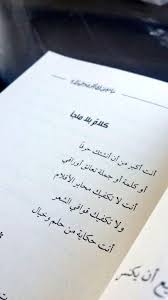 كلام بلا ملجأ
أنت أكبر من أن أنثرك حرفا
أو كلمة أو جملة تعانق أوراقي
أنت لا تكفيك محابر الأقلام
ولا تكفيك قوافي الشعر
أنت حكاية من حلم وخيال